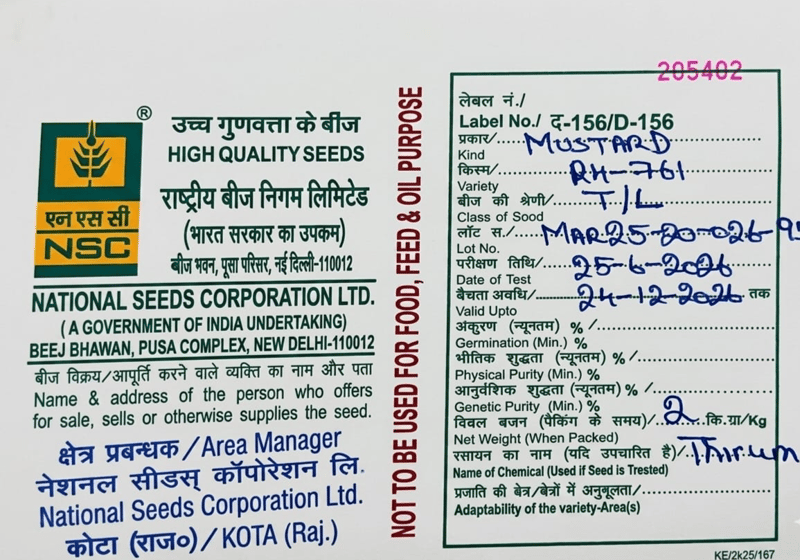 205402
®
एन एस सी
NSC
उच्च गुणवत्ता के बीज
HIGH QUALITY SEEDS
राष्ट्रीय बीज निगम लिमिटेड
(भारत सरकार का उपकम)
बीज भवन, पूसा परिसर, नई दिल्ली-110012
NATIONAL SEEDS CORPORATION LTD.
( A GOVERNMENT OF INDIA UNDERTAKING)
BEEJ BHAWAN, PUSA COMPLEX, NEW DELHI-110012
बीज विक्रय/आपूर्ति करने वाले व्यक्ति का नाम और पता
Name & address of the person who offers
for sale, sells or otherwise supplies the seed.
क्षेत्र प्रबन्धक/Area Manager
नेशनल सीडस् कॉपोरेशन लि.
National Seeds Corporation Ltd.
कोटा (राज०)/KOTA (Raj.)
NOT TO BE USED FOR FOOD, FEED & OIL PURPOSE
लेबल नं./
Label No./ द-156/D-156
प्रकार/ MUSTARD
Kind
किस्म/ RH-761
Variety
बीज की श्रेणी/ T/L
Class of Sood
लॉट स./ MAR25-20-026-95
Lot No.
परीक्षण तिथि/ 25-6-2026
Date of Test
बैचता अवधि/ 24-12-2026 तक
Valid Upto
अंकुरण (न्यूनतम) % /
Germination (Min.) %
भौतिक शुद्धता (न्यूनतम) % /
Physical Purity (Min.) %
आनुवंशिक शुद्धता (न्यूनतम) % /
Genetic Purity (Min.) %
विवल बजन (पैकिंग के समय)/ 2 कि.ग्रा/Kg
Net Weight (When Packed)
रसायन का नाम (यदि उपचारित है)/ Thirum
Name of Chemical (Used if Seed is Treated)
प्रजाति की बेत्र/बेत्रों में अनुबूलता/
Adaptability of the variety-Area(s)
KE/2k25/167